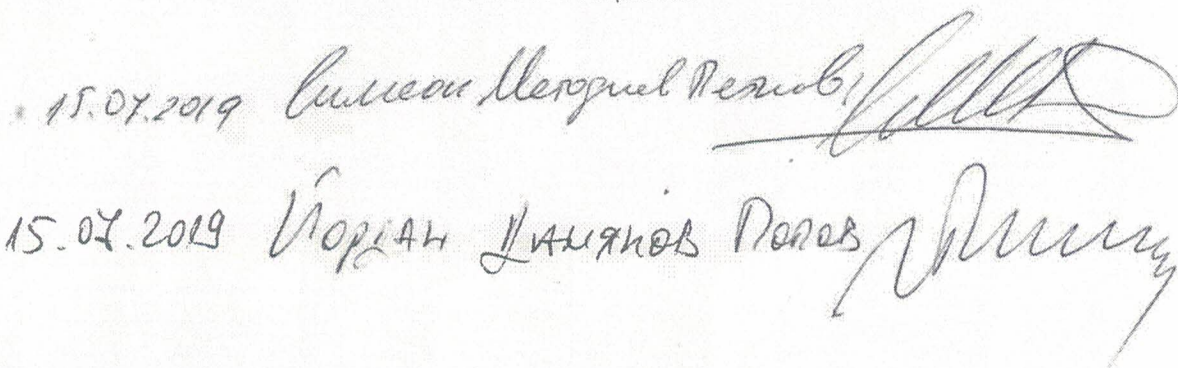 15.07.2019 Симеон Методиев Петков
15.07.2019 Йордан Дамянов Попов